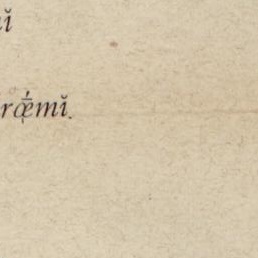 ĭ
rœ̄́mĭ.